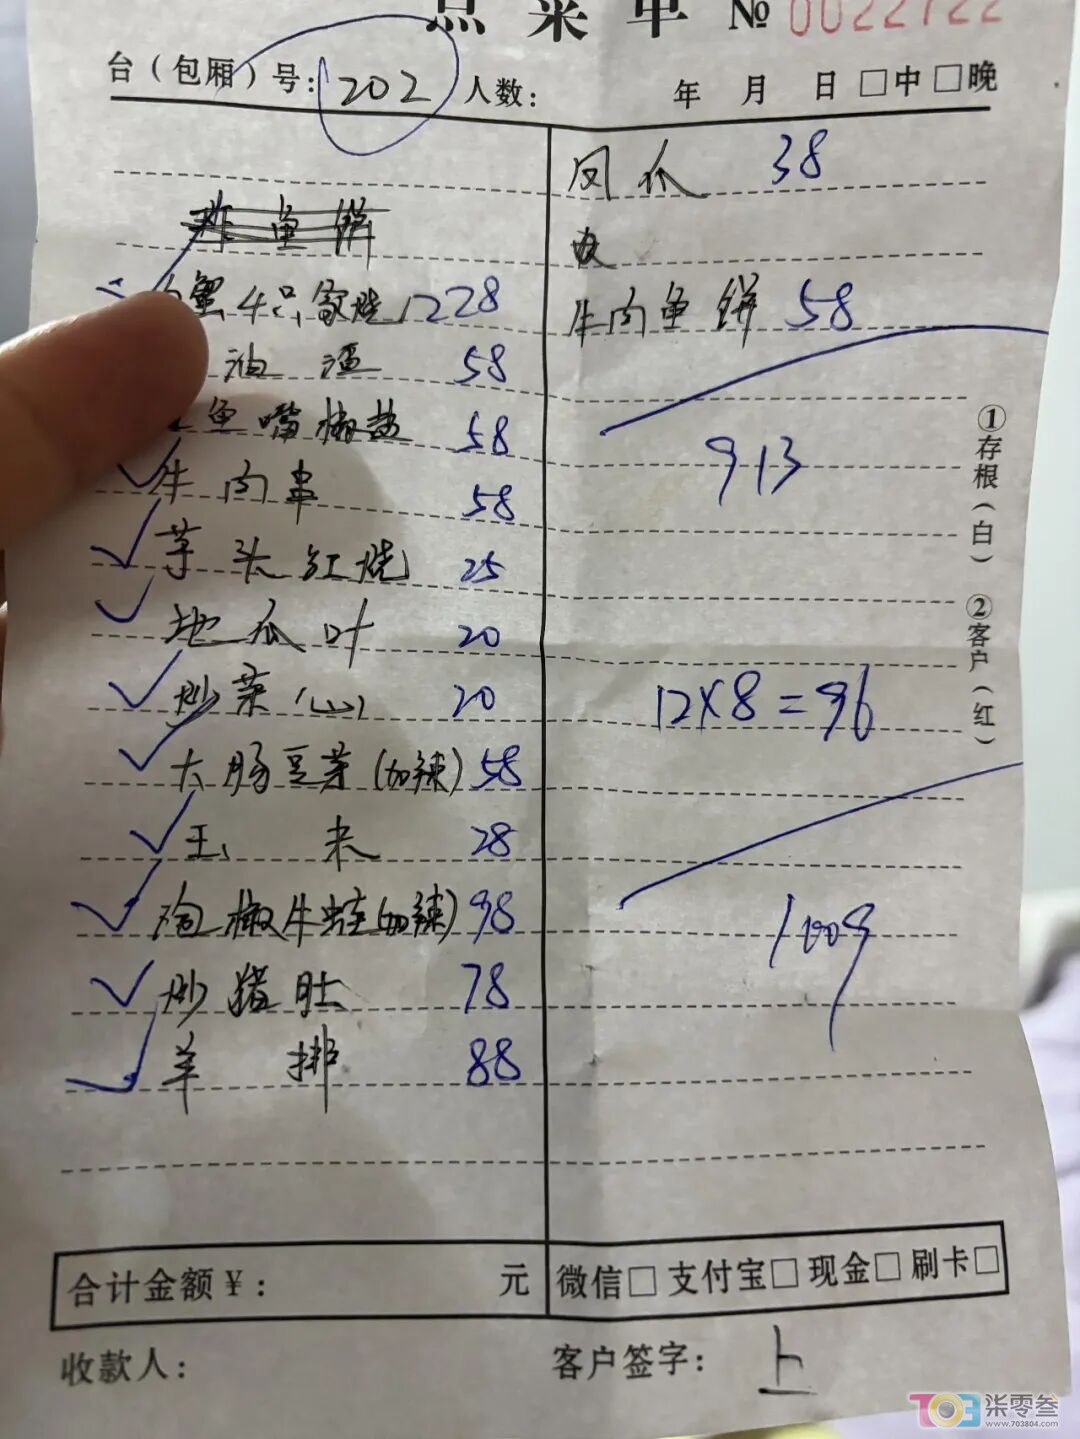 点菜单 № 0022722
台（包厢）号：202 人数： 年 月 日 □中 □晚
炸鱼饼
蟹4只家烧 228
油渣 58
鱼嘴椒盐 58
牛肉串 58
芋头红烧 25
地瓜叶 20
炒菜（山） 20
大肠豆芽（加辣） 58
玉米 28
泡椒牛蛙（加辣） 98
炒猪肚 78
羊排 88
凤爪 38
牛肉鱼饼 58
913
12×8=96
1009
①存根（白） ②客户（红）
合计金额￥： 元 微信□ 支付宝□ 现金□ 刷卡□
收款人： 客户签字：上
703 柒零叁
www.703804.com